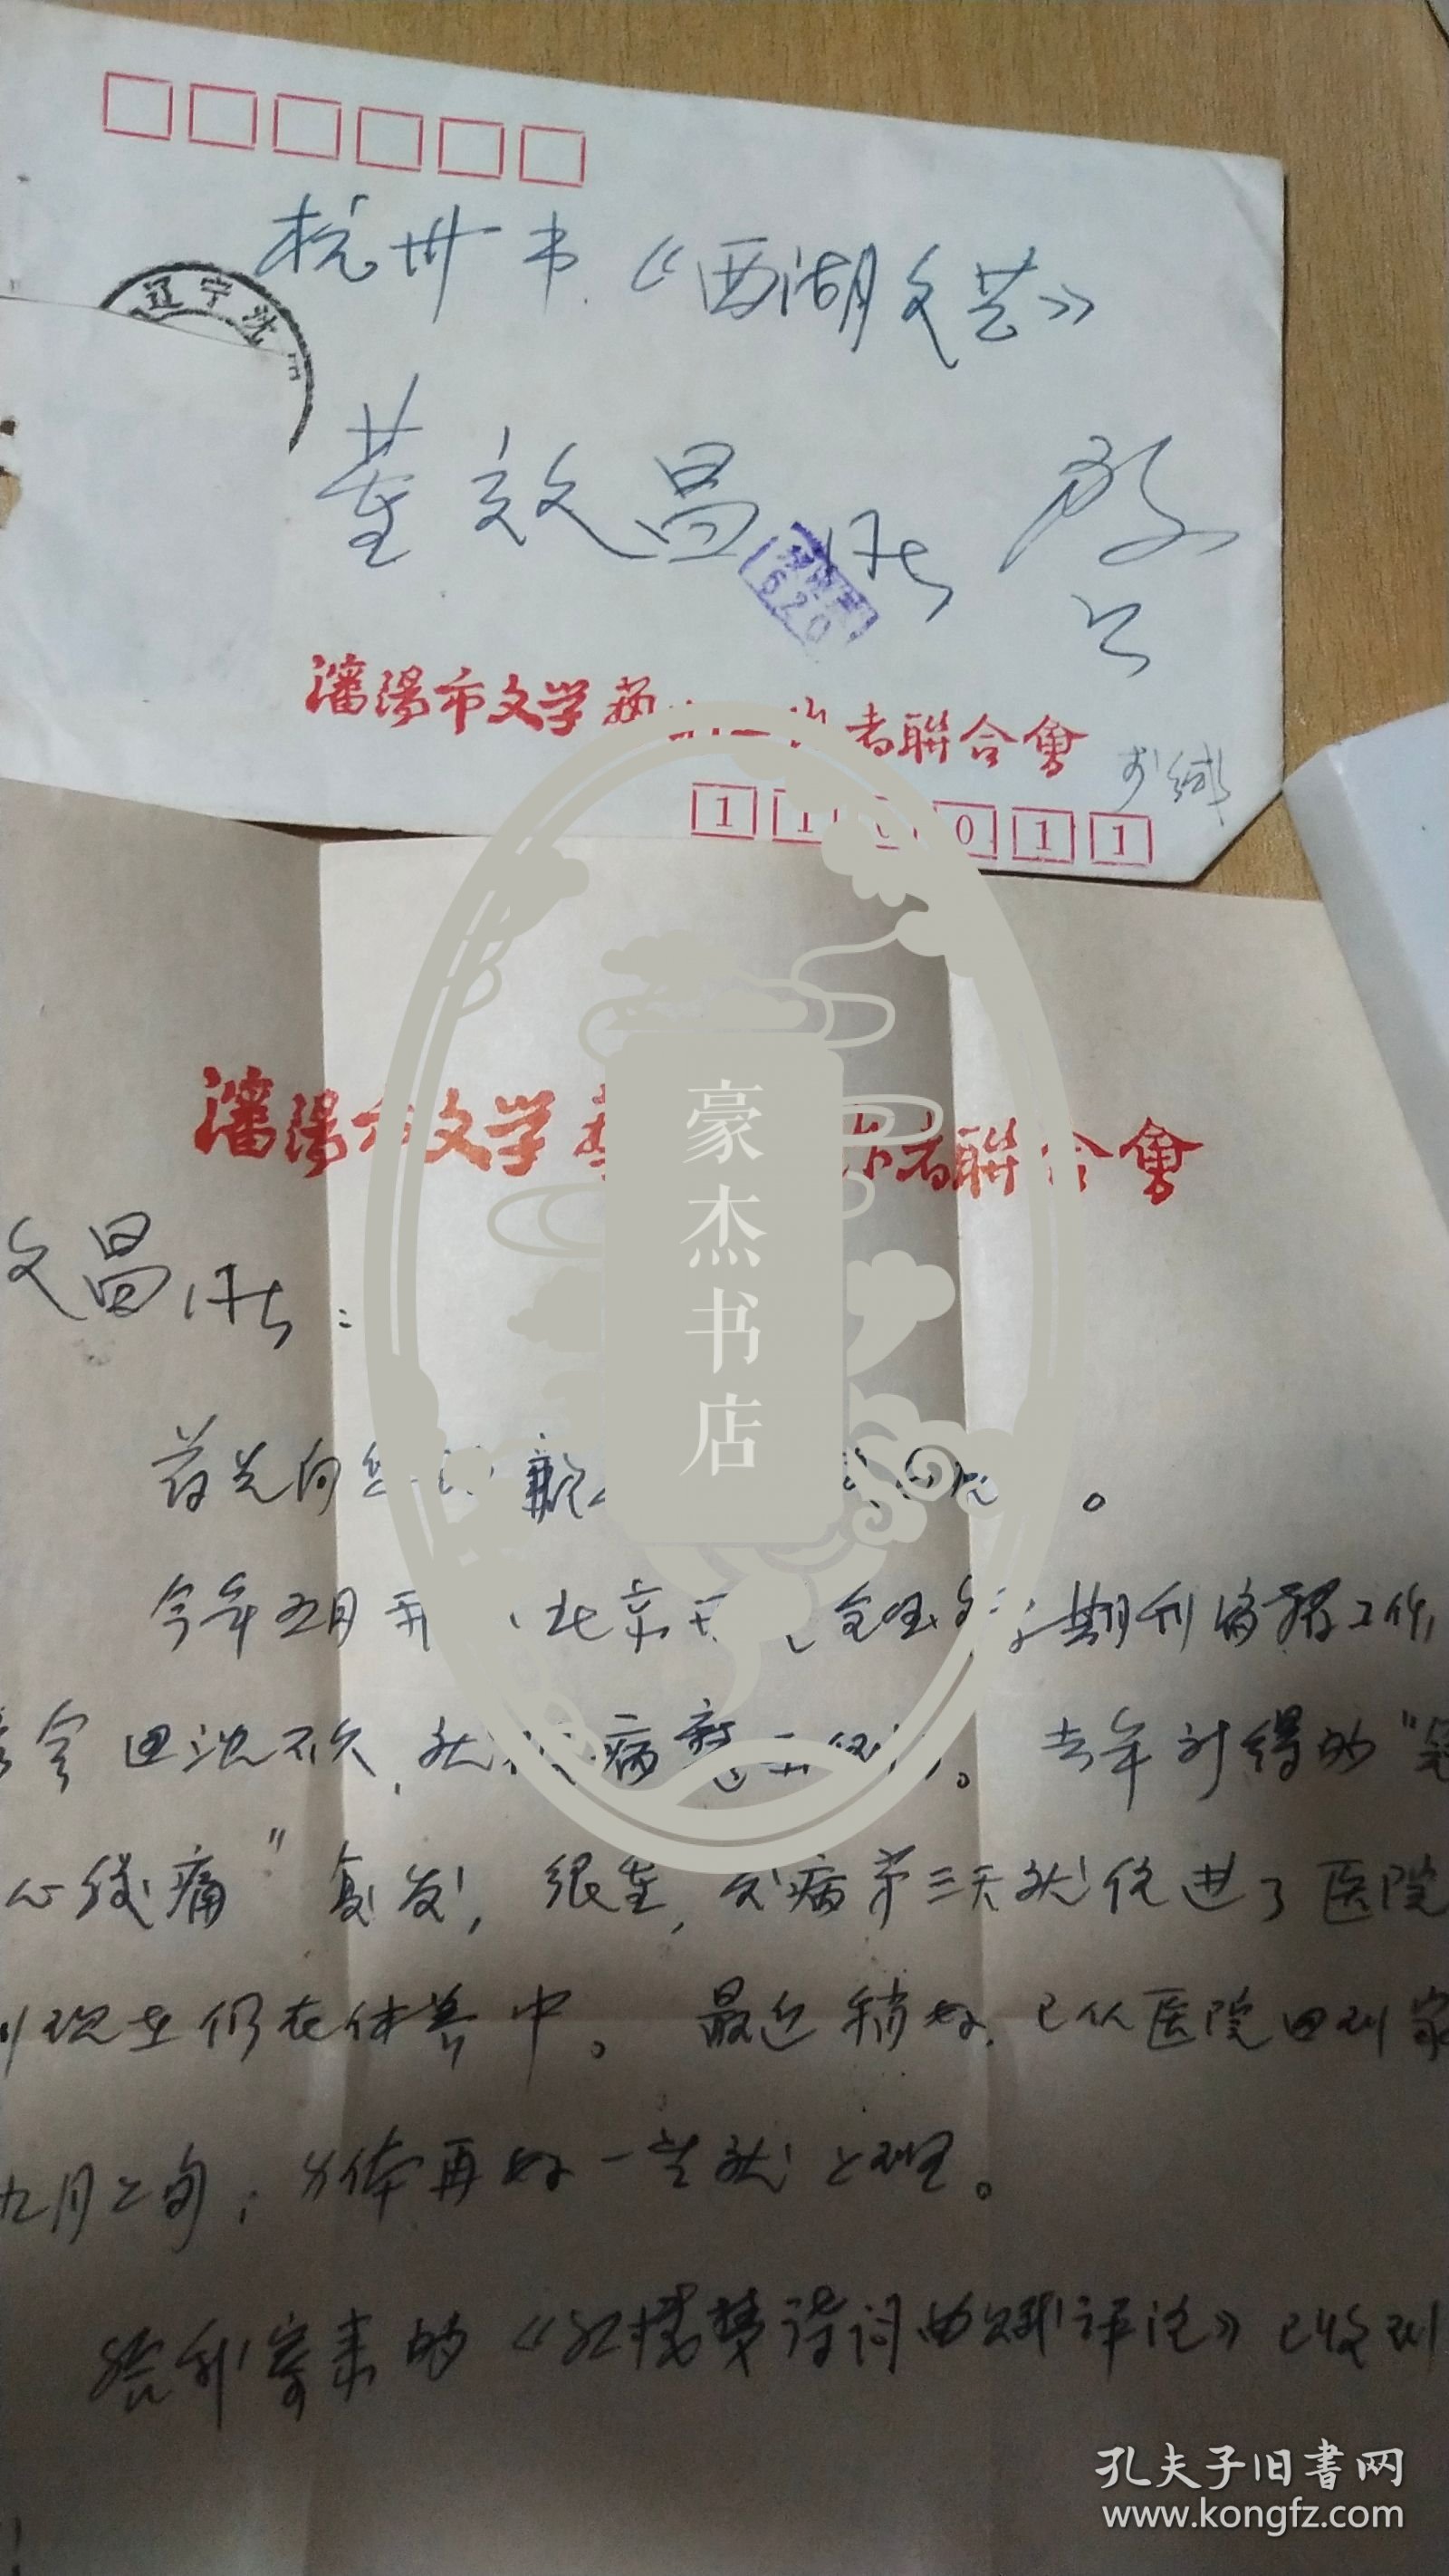 杭州市《西湖文芸》
辽宁沈
董效昌同志 啟
620
瀋陽市文学 者聯合會
刘缄
1 1 0 1 1
瀋陽市文学 者聯合會
豪杰书店
文昌同志:
首先向您
今年五月 北京 全国文学期刊编辑工作
回沈不久,就 病 。去年新得的"冠
心绞痛"复发,很重,犯病第三天就住进了医院
到现在仍在休养中。最近稍好,已从医院回到家
九月上旬,身体再好一些就上班。
给我寄来的《红楼梦诗词曲赋评注》已收到
孔夫子旧书网
www.kongfz.com